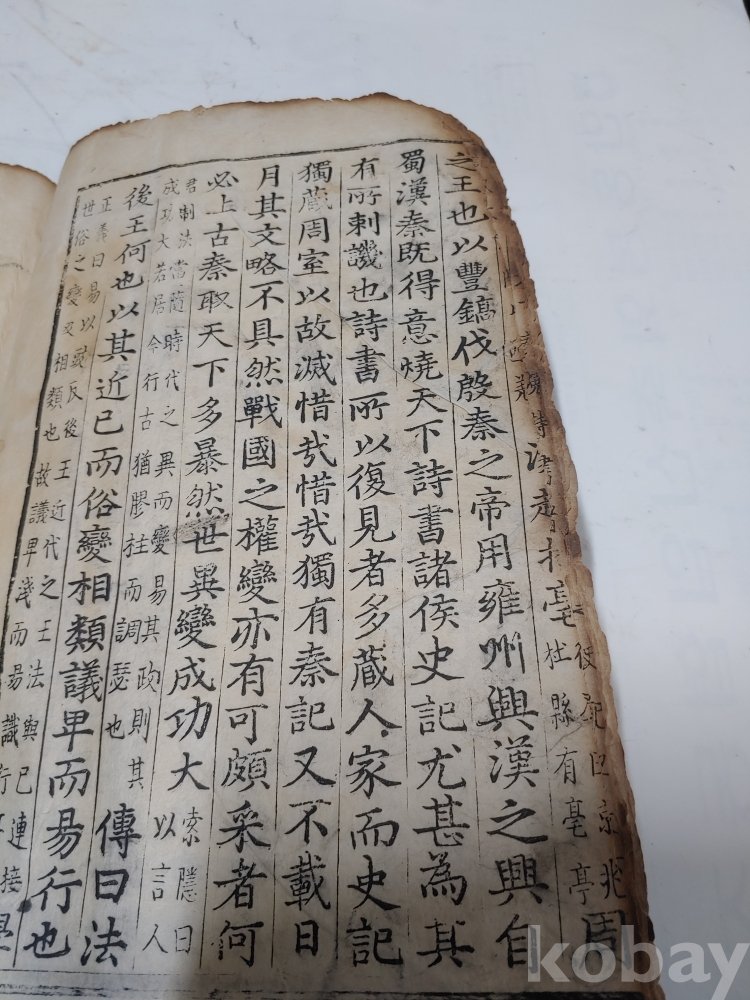 亳
曰京兆
杜縣有亳亭
周
之王也以豐鎬伐殷秦之帝用雍州興漢之興自
蜀漢秦既得意燒天下詩書諸侯史記尤甚為其
有所刺譏也詩書所以復見者多藏人家而史記
獨藏周室以故滅惜哉惜哉獨有秦記又不載日
月其文略不具然戰國之權變亦有可頗采者何
必上古秦取天下多暴然世異變成功大
索隱曰
以言人
君制法當隨時代之異而變易其政則其
成功大若居今行古猶膠柱而調瑟也
傳曰法
後王何也以其近已而俗變相類議卑而易行也
正義曰易以豉反後王近代之王法與已連接
世俗之變及相類也故議卑淺而易識行
kobay